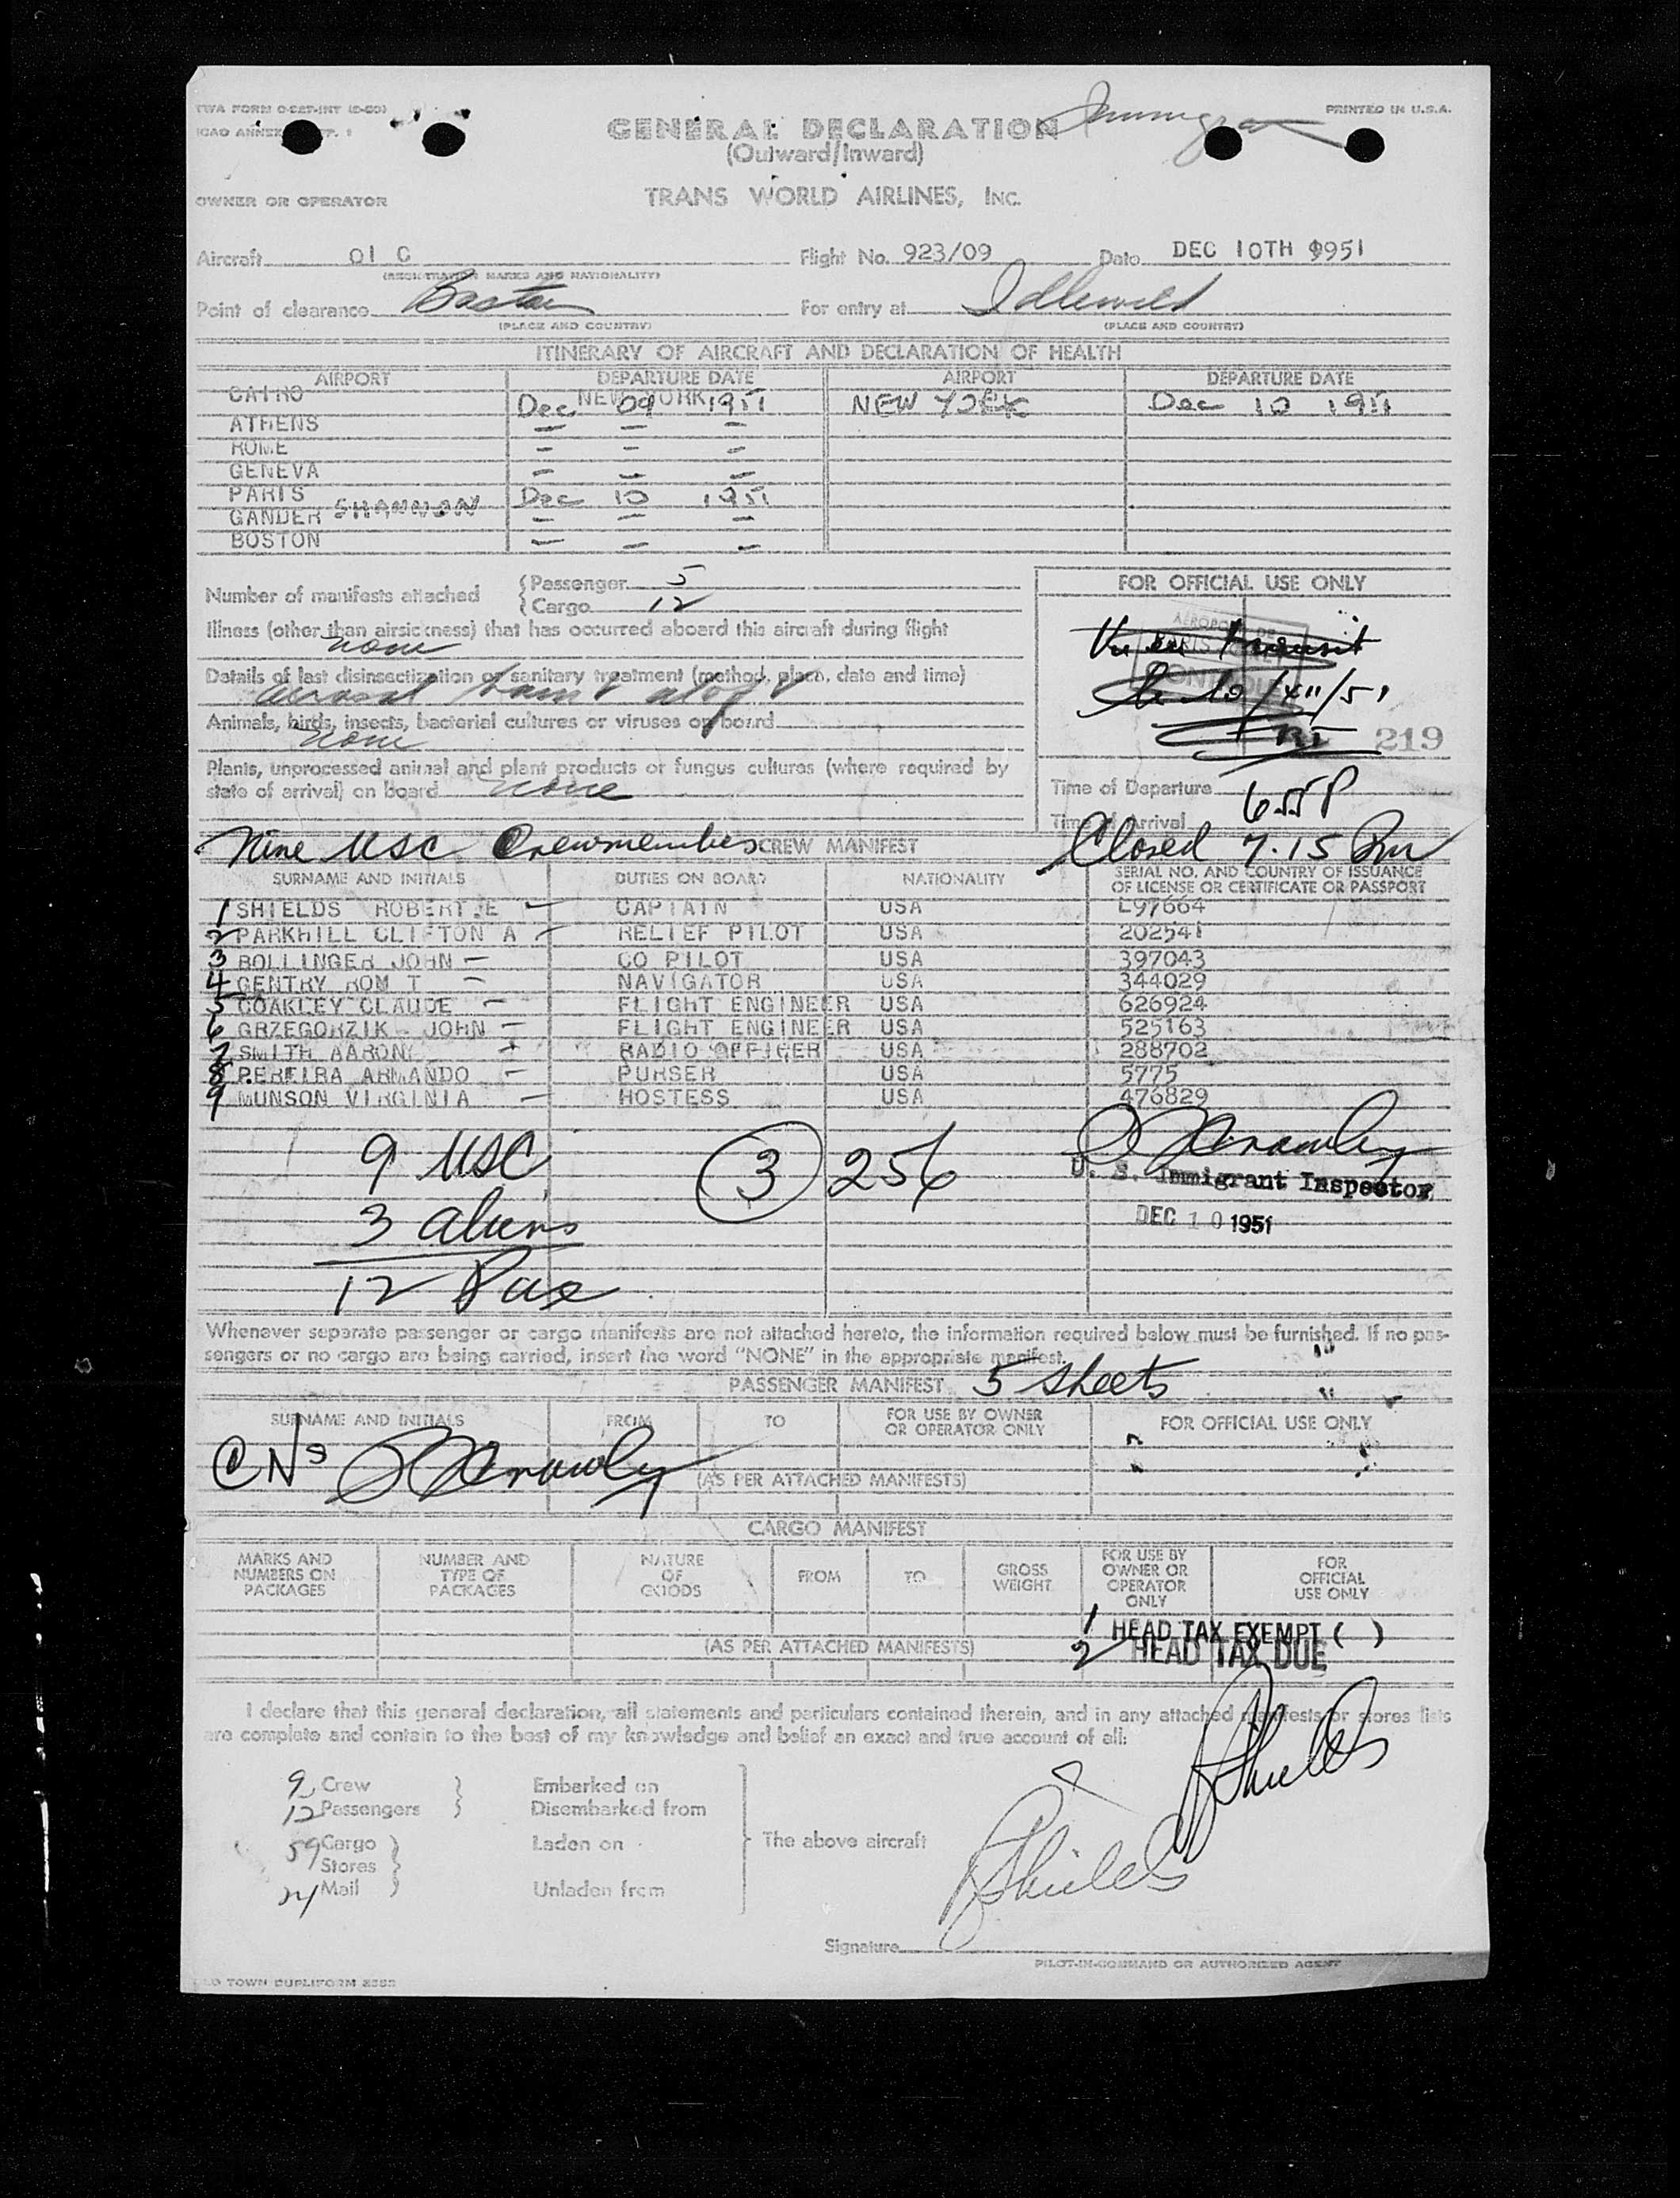 TWA FORM O-527-INT (2-50)
PRINTED IN U.S.A.
ICAO ANNEX 1
GENERAL DECLARATION
(Outward/Inward)
TRANS WORLD AIRLINES, INC.
OWNER OR OPERATOR
Aircraft 01 C Flight No. 923/09 Date DEC 10TH 1951
(REGISTRATION MARKS AND NATIONALITY)
Point of clearance Boston For entry at Idlewild
(PLACE AND COUNTRY) (PLACE AND COUNTRY)
ITINERARY OF AIRCRAFT AND DECLARATION OF HEALTH
AIRPORT DEPARTURE DATE AIRPORT DEPARTURE DATE
CAIRO NEW YORK
Dec 09 1951 NEW YORK Dec 10 1951
ATHENS — — —
ROME — — —
GENEVA — — —
PARIS Dec 10 1951
GANDER SHANNON — — —
BOSTON — — —
Number of manifests attached { Passenger 5
{ Cargo 12
FOR OFFICIAL USE ONLY
Illness (other than airsickness) that has occurred aboard this aircraft during flight
none
Vu en transit
Details of last disinsectization or sanitary treatment (method, place, date and time)
aerosol
le 10/XII/51
Animals, birds, insects, bacterial cultures or viruses on board
none
219
Plants, unprocessed animal and plant products or fungus cultures (where required by
state of arrival) on board none
Time of Departure 655P
Time of Arrival
Nine USC Crewmembers CREW MANIFEST Closed 7.15 Pm
SURNAME AND INITIALS DUTIES ON BOARD NATIONALITY SERIAL NO. AND COUNTRY OF ISSUANCE
OF LICENSE OR CERTIFICATE OR PASSPORT
1 SHIELDS ROBERT E CAPTAIN USA L97664
2 PARKHILL CLIFTON A RELIEF PILOT USA 202541
3 BOLLINGER JOHN CO PILOT USA 397043
4 GENTRY ROM T NAVIGATOR USA 344029
5 COAKLEY CLAUDE FLIGHT ENGINEER USA 626924
6 GRZEGORZIK JOHN FLIGHT ENGINEER USA 525163
7 SMITH AARON RADIO OFFICER USA 288702
8 PEREIRA ARMANDO PURSER USA 5775
9 MUNSON VIRGINIA HOSTESS USA 476829
9 USC 3 256
U. S. Immigrant Inspector
3 aliens DEC 10 1951
12 Pax
Whenever separate passenger or cargo manifests are not attached hereto, the information required below must be furnished. If no pas-
sengers or no cargo are being carried, insert the word "NONE" in the appropriate manifest.
PASSENGER MANIFEST 5 sheets
SURNAME AND INITIALS FROM TO FOR USE BY OWNER
OR OPERATOR ONLY FOR OFFICIAL USE ONLY
(AS PER ATTACHED MANIFESTS)
CARGO MANIFEST
MARKS AND
NUMBERS ON
PACKAGES NUMBER AND
TYPE OF
PACKAGES NATURE
OF
GOODS FROM TO GROSS
WEIGHT FOR USE BY
OWNER OR
OPERATOR
ONLY FOR
OFFICIAL
USE ONLY
1 HEAD TAX EXEMPT ( )
(AS PER ATTACHED MANIFESTS) 2 HEAD TAX DUE
I declare that this general declaration, all statements and particulars contained therein, and in any attached manifests or stores lists
are complete and contain to the best of my knowledge and belief an exact and true account of all:
9 Crew Embarked on
12 Passengers Disembarked from
59 Cargo Laden on The above aircraft
Stores
24 Mail Unladen from
R Shields
R Shields
Signature
PILOT-IN-COMMAND OR AUTHORIZED AGENT